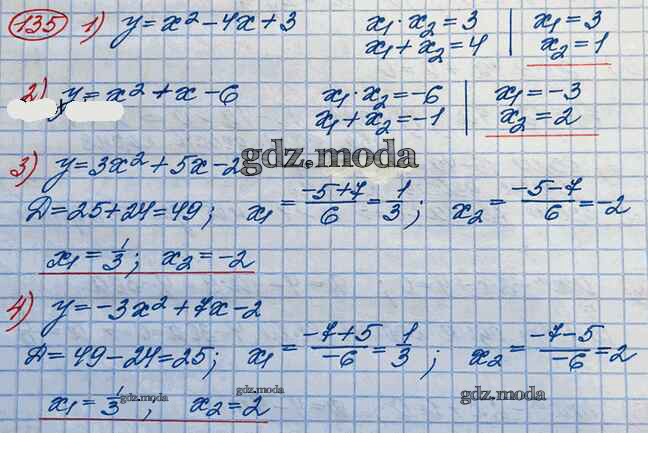 135 1) y = x² - 4x + 3 x₁ · x₂ = 3 | x₁ = 3
x₁ + x₂ = 4 | x₂ = 1
2) y = x² + x - 6 x₁ · x₂ = -6 | x₁ = -3
x₁ + x₂ = -1 | x₂ = 2
3) y = 3x² + 5x - 2
gdz.moda
Д = 25 + 24 = 49; x₁ = (-5+7)/6 = 1/3; x₂ = (-5-7)/6 = -2
x₁ = 1/3; x₂ = -2
4) y = -3x² + 7x - 2
Д = 49 - 24 = 25; x₁ = (-7+5)/-6 = 1/3; x₂ = (-7-5)/-6 = 2
x₁ = 1/3; x₂ = 2
gdz.moda
gdz.moda
gdz.moda